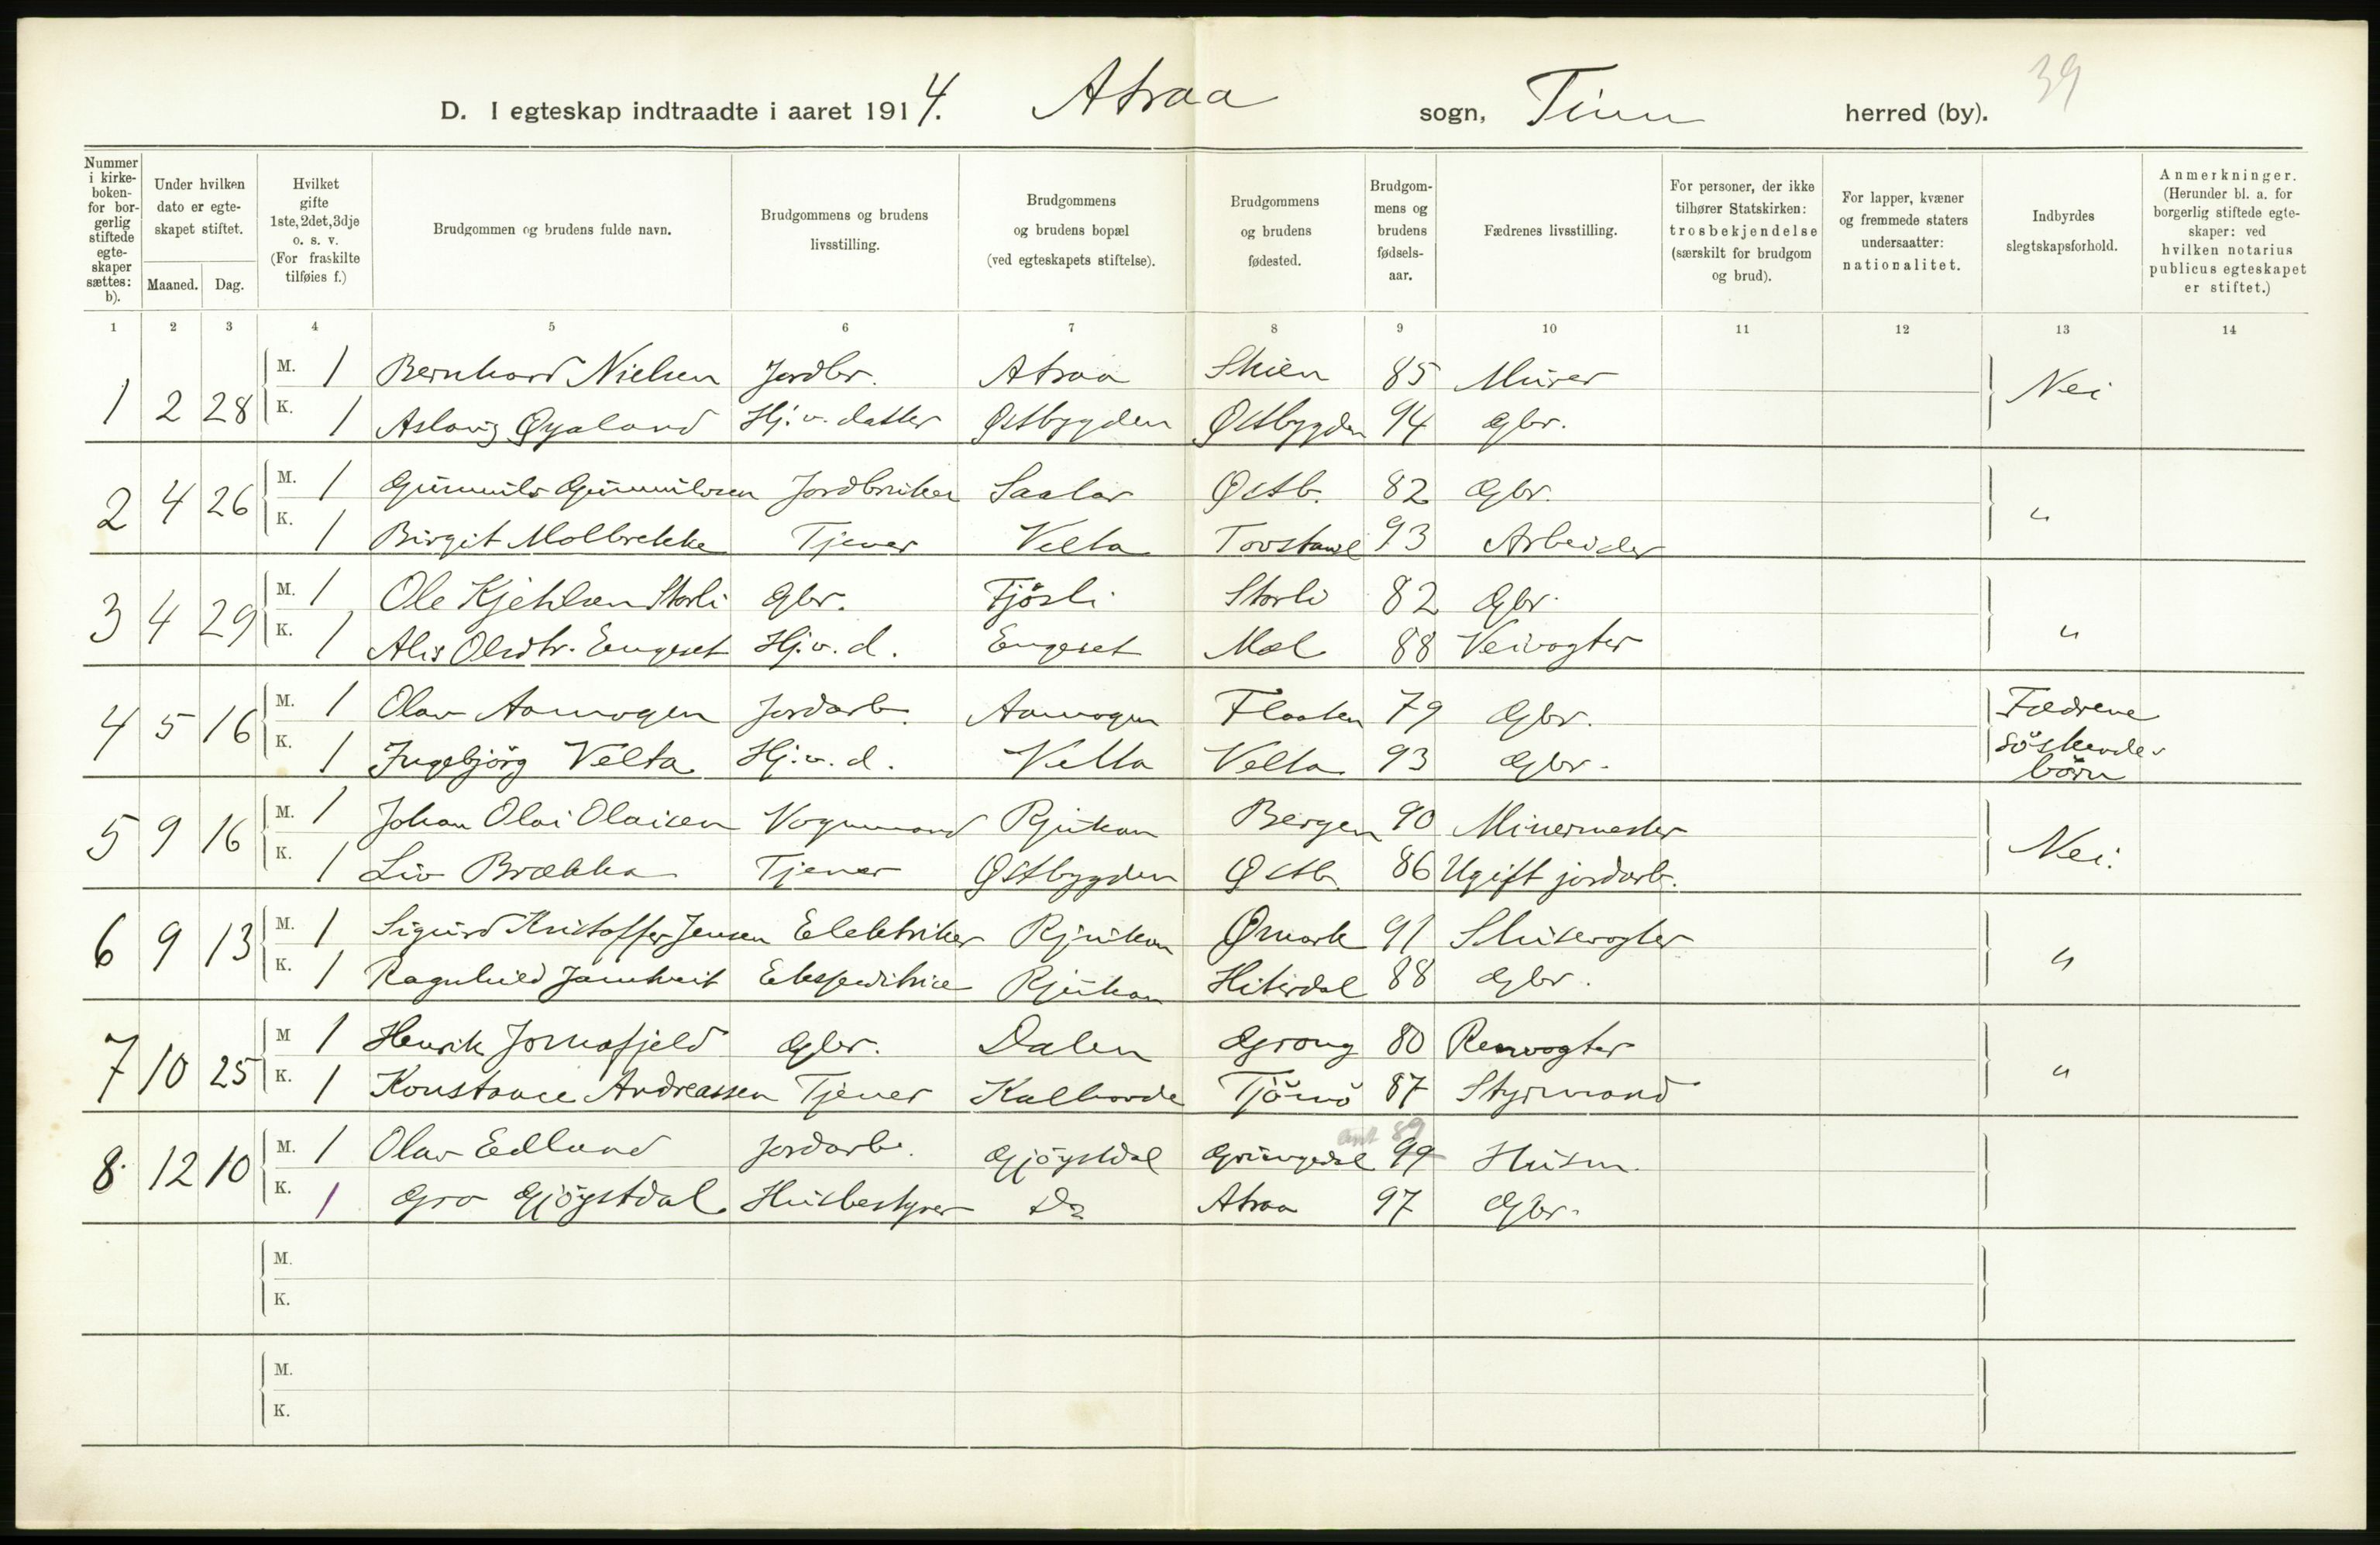 39
D. I egteskap indtraadte i aaret 1914. Atraa sogn, Tinn herred (by).
Nummer i kirkeboken- for borgerlig stiftede egteskaper sættes: b).
Under hvilken dato er egteskapet stiftet.
Maaned. Dag.
Hvilket gifte 1ste, 2det, 3dje o. s. v. (For fraskilte tilføies f.)
Brudgommen og brudens fulde navn.
Brudgommens og brudens livsstilling.
Brudgommens og brudens bopæl (ved egteskapets stiftelse).
Brudgommens og brudens fødested.
Brudgommens og brudens fødselsaar.
Fædrenes livsstilling.
For personer, der ikke tilhører Statskirken: trosbekjendelse (særskilt for brudgom og brud).
For lapper, kvæner og fremmede staters undersaatter: nationalitet.
Indbyrdes slegtskapsforhold.
Anmerkninger. (Herunder bl. a. for borgerlig stiftede egteskaper: ved hvilken notarius publicus egteskapet er stiftet.)
1 2 3 4 5 6 7 8 9 10 11 12 13 14
1 2 28 M. 1 Bernhard Nielsen Jordbr. Atraa Skien 85 Murer Nei
K. 1 Aslaug Øyaland Hj. v. datter Østbygden Østbygden 94 Gbr.
2 4 26 M. 1 Gunnulv Gunnulvsen Jordbruker Saalar Østb. 82 Gbr. "
K. 1 Birgit Molbrekke Tjener Velta 93 Arbeider
3 4 29 M. 1 Ole Storli Gbr. Tjösli Storli 82 Gbr. "
K. 1 Alis Olsdtr. Engeset Hj. v. d. Engeset Mæl 88 Veivogter
4 5 16 M. 1 Olav Aamogen Jordarb. Aamogen Flaaten 79 Gbr. Fædrene
K. 1 Ingebjörg Velta Hj. v. d. Velta Velta 93 Gbr. söskende-
börn
5 9 16 M. 1 Johan Olai Olaisen Vognmand Rjukan Bergen 90 Minermester Nei.
K. 1 Liv Brækka Tjener Østbygden Østb. 86 Ugift jordarb.
6 9 13 M. 1 Sigurd Kristoffer Jensen Elektriker Rjukan Ømark 91 Slusevogter "
K. 1 Ragnhild Jamtveit Ekspeditrice Rjukan Hiterdal 88 Gbr.
7 10 25 M 1 Henrik Jomafjeld Gbr. Dalen Grong 80 Renvogter "
K. 1 Konstance Andreassen Tjener Kalhovde Tjömö 87 Styrmand
8. 12 10 M. 1 Olav Edland Jordarb. Gjöystdal Grungedal 99 Husm.
ant 89
K. 1 Gro Gjöystdal Husbestyrer Do Atraa 97 Gbr.
M.
K.
M.
K.